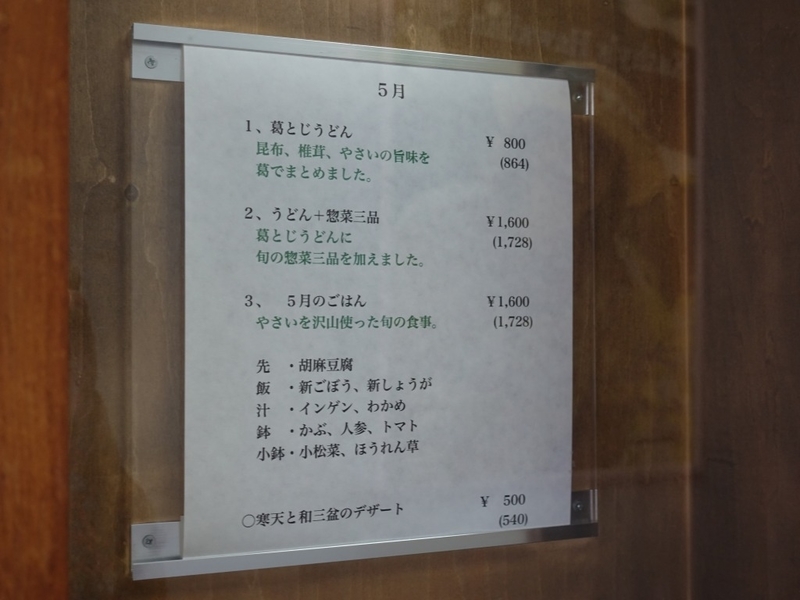 5月
1、葛とじうどん ¥ 800
昆布、椎茸、やさいの旨味を (864)
葛でまとめました。
2、うどん＋惣菜三品 ¥1,600
葛とじうどんに (1,728)
旬の惣菜三品を加えました。
3、　5月のごはん ¥1,600
やさいを沢山使った旬の食事。 (1,728)
先　・胡麻豆腐
飯　・新ごぼう、新しょうが
汁　・インゲン、わかめ
鉢　・かぶ、人参、トマト
小鉢・小松菜、ほうれん草
○寒天と和三盆のデザート ¥ 500
(540)